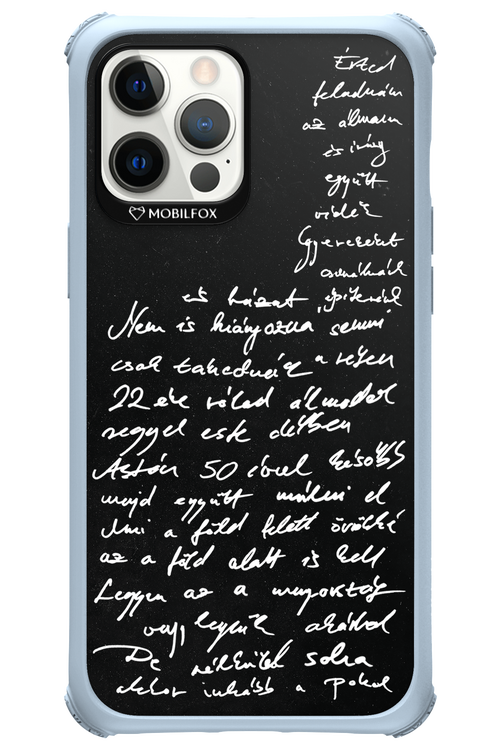 Érted
feladnám
az álmaim
és így
együtt
Gyerekeket
csinálnánk
és házat építenék
Nem is hiányozna semmi
csak takednék a réten
22 éve rólad álmodok
reggel este délben
Aztán 50 évvel később
majd együtt múlni el
Ami a föld felett örökké
az a föld alatt is kell
Legyen az a mennyország
vagy legyünk akárhol
De nélküled soha
akkor inkább a Pokol
MOBILFOX